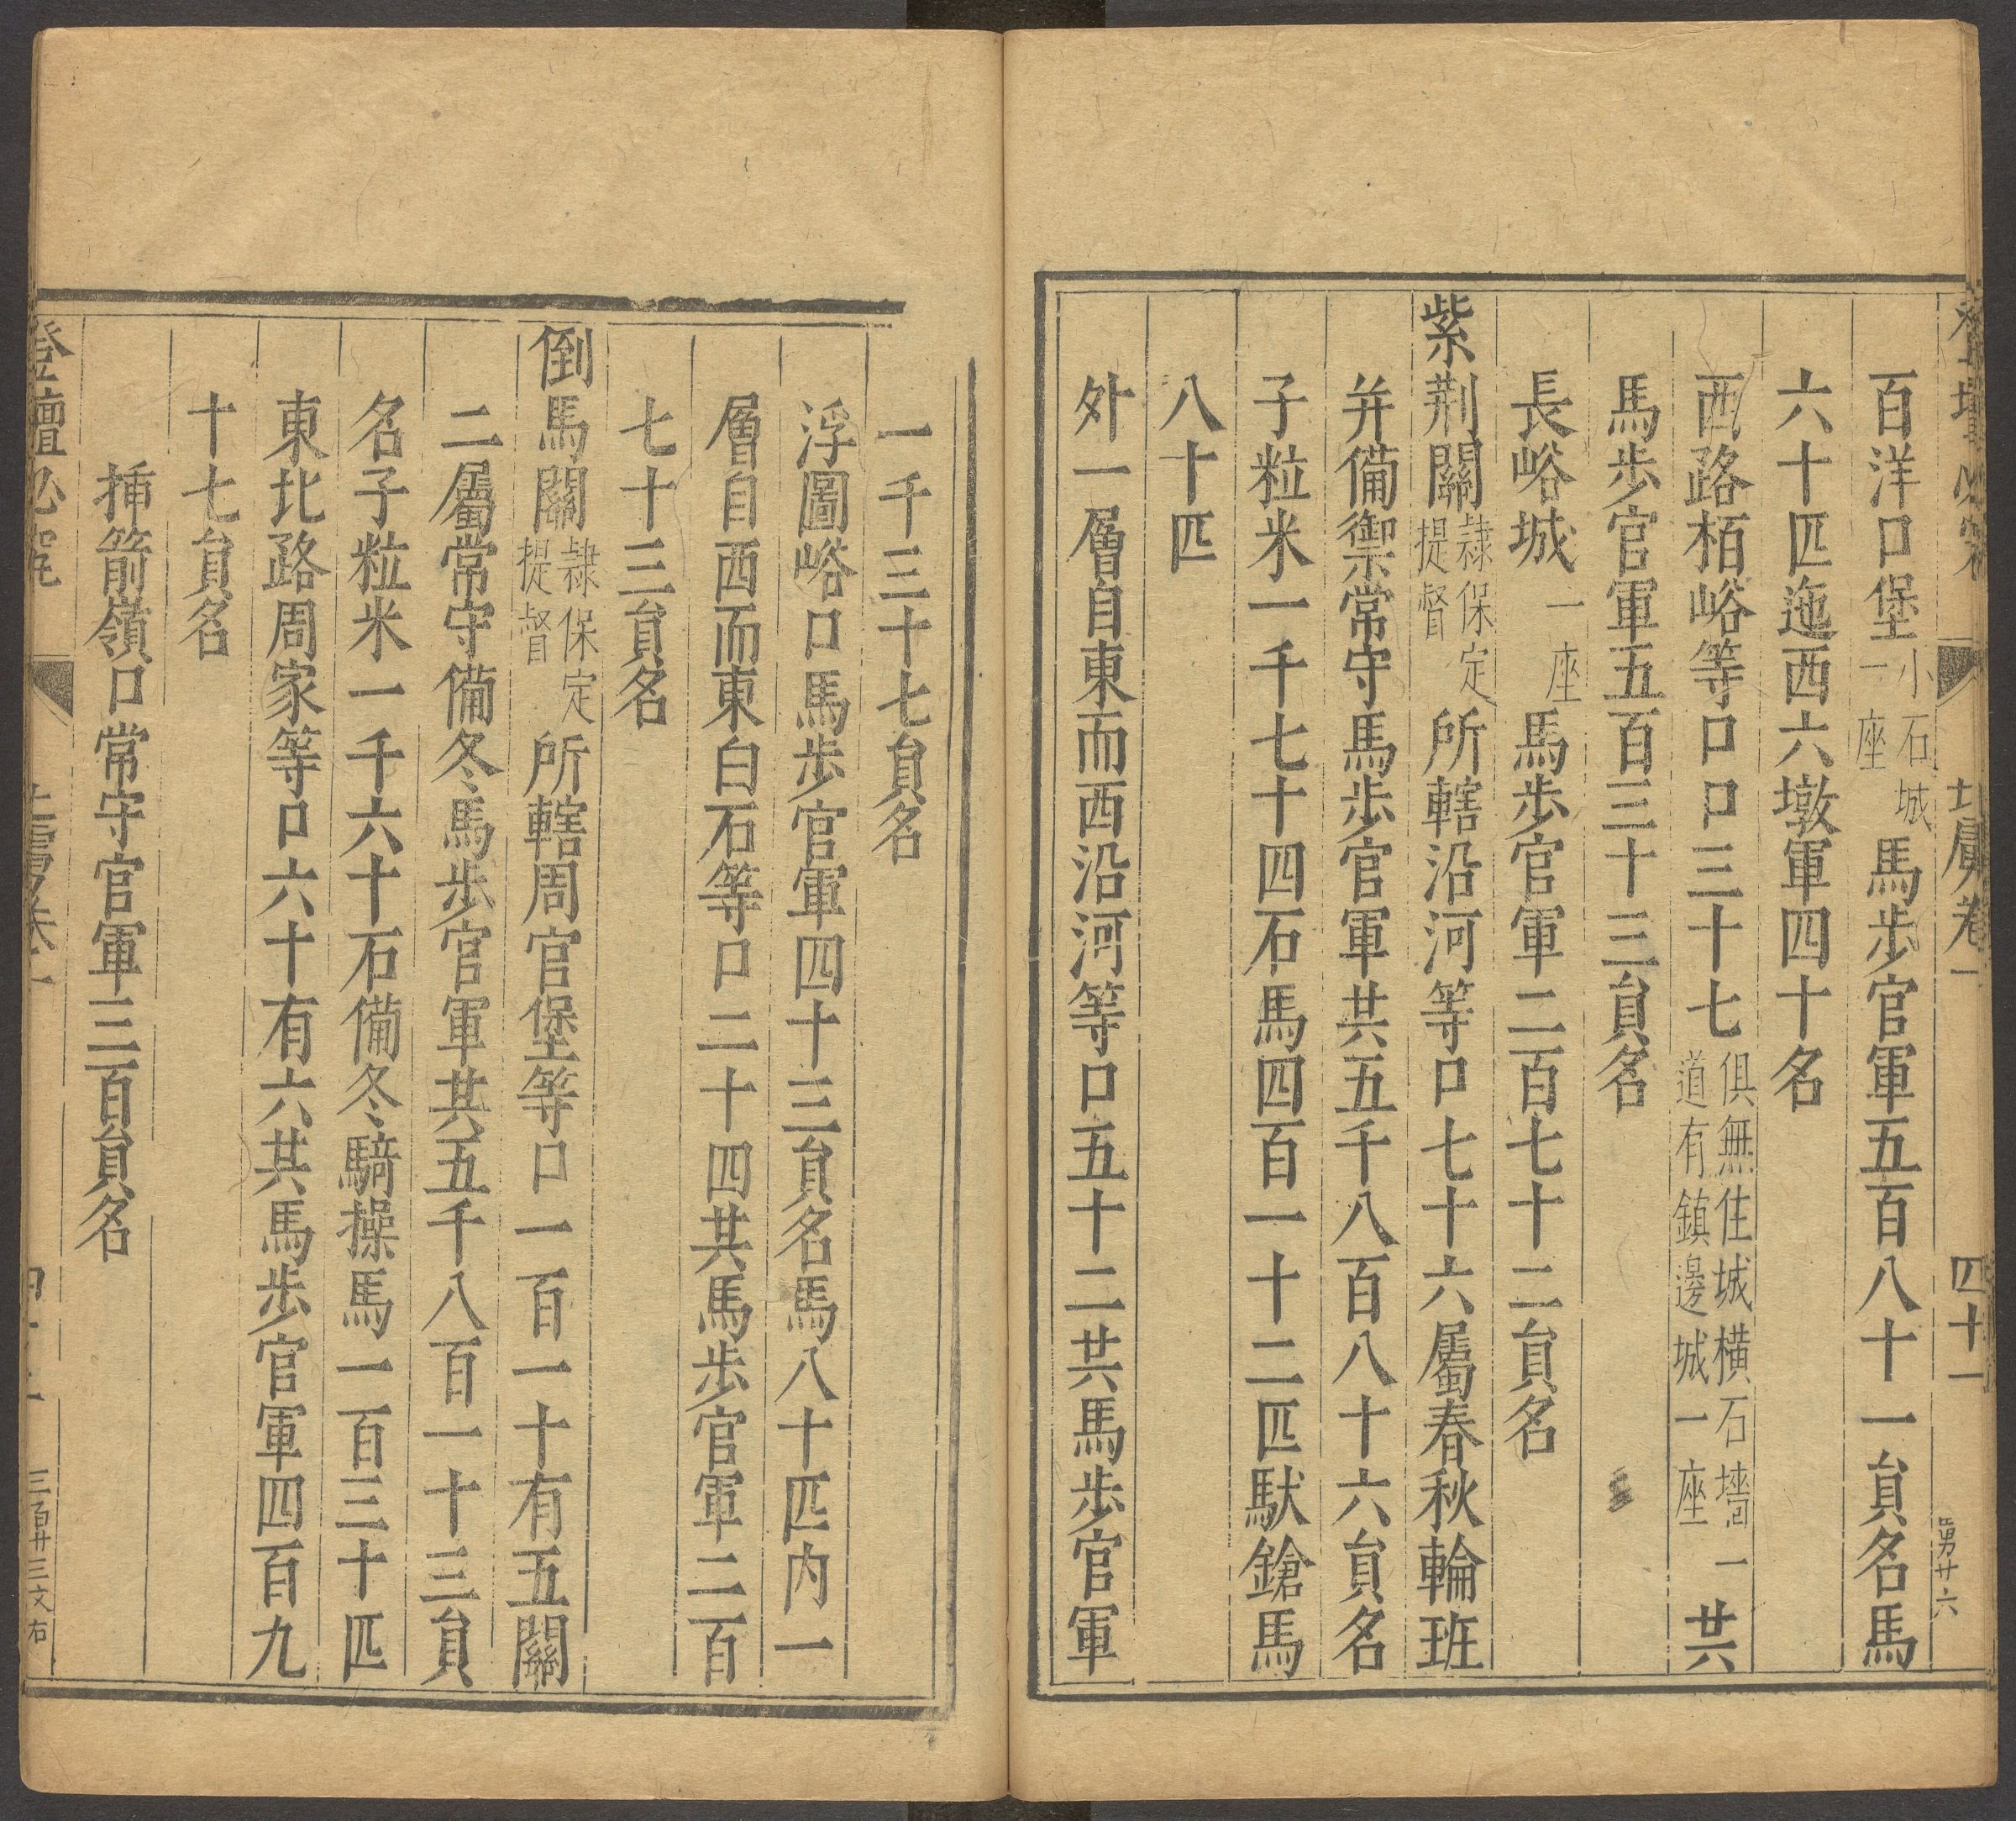 四十一
勇廿六
百洋口堡小石城一座馬步官軍五百八十一員名馬
六十匹迤西六墩軍四十名
西路栢峪等口口三十七俱無住城橫石墻一道有鎮邊城一座共
馬步官軍五百三十三員名
長峪城一座馬步官軍二百七十二員名
紫荆關隷保定提督所轄沿河等口七十六屬春秋輪班
并備禦常守馬步官軍共五千八百八十六員名
子粒米一千七十四石馬四百一十二匹馱鎗馬
八十匹
外一層自東而西沿河等口五十二共馬步官軍
一千三十七員名
浮圖峪口馬步官軍四十三員名馬八十匹内一
層自西而東白石等口二十四共馬步官軍二百
七十三員名
倒馬關隷保定提督所轄周官堡等口一百一十有五關
二屬常守備冬馬步官軍共五千八百一十三員
名子粒米一千六十石備冬騎操馬一百三十匹
東北路周家等口六十有六共馬步官軍四百九
十七員名
揷箭嶺口常守官軍三百員名
登壇必究
三百廿三文右